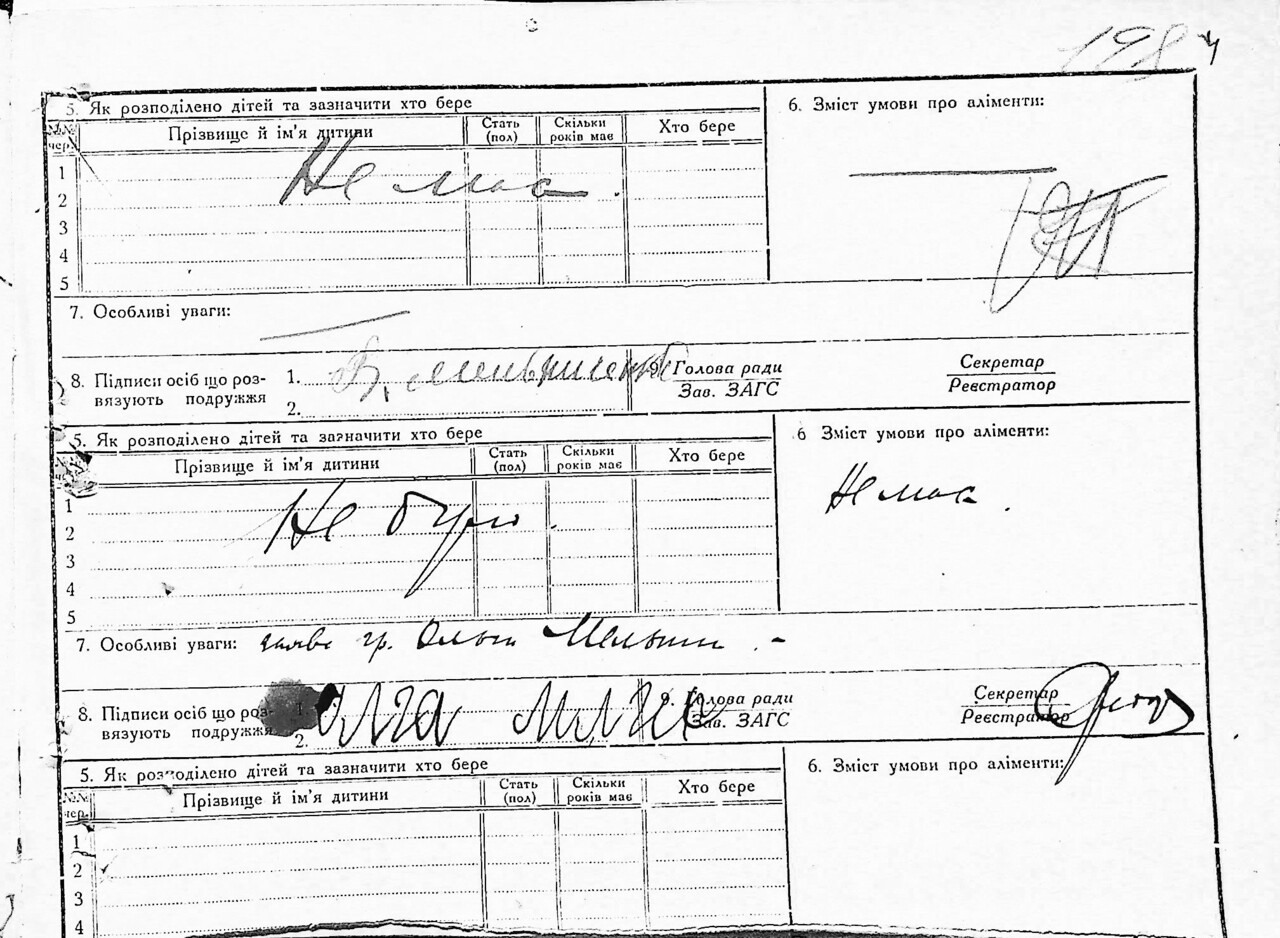 198
5. Як розподілено дітей та зазначити хто бере
6. Зміст умови про аліменти:
№№ чер. Прізвище й ім'я дитини Стать (пол) Скільки років має Хто бере
1
Не має.
2
3
4
5
7. Особливі уваги:
8. Підписи осіб що роз-
вязують подружжя
1. Мельниченко
2.
9. Голова ради
Зав. ЗАГС
Секретар
Реєстратор
5. Як розподілено дітей та зазначити хто бере
6 Зміст умови про аліменти:
Прізвище й ім'я дитини Стать (пол) Скільки років має Хто бере
Не має.
1
Не було.
2
3
4
5
7. Особливі уваги: заява гр. Ольги
8. Підписи осіб що роз-
вязують подружжя
1.
2.
9. Голова ради
Зав. ЗАГС
Секретар
Реєстратор
5. Як розподілено дітей та зазначити хто бере
6. Зміст умови про аліменти:
№№ чер. Прізвище й ім'я дитини Стать (пол) Скільки років має Хто бере
1
2
3
4